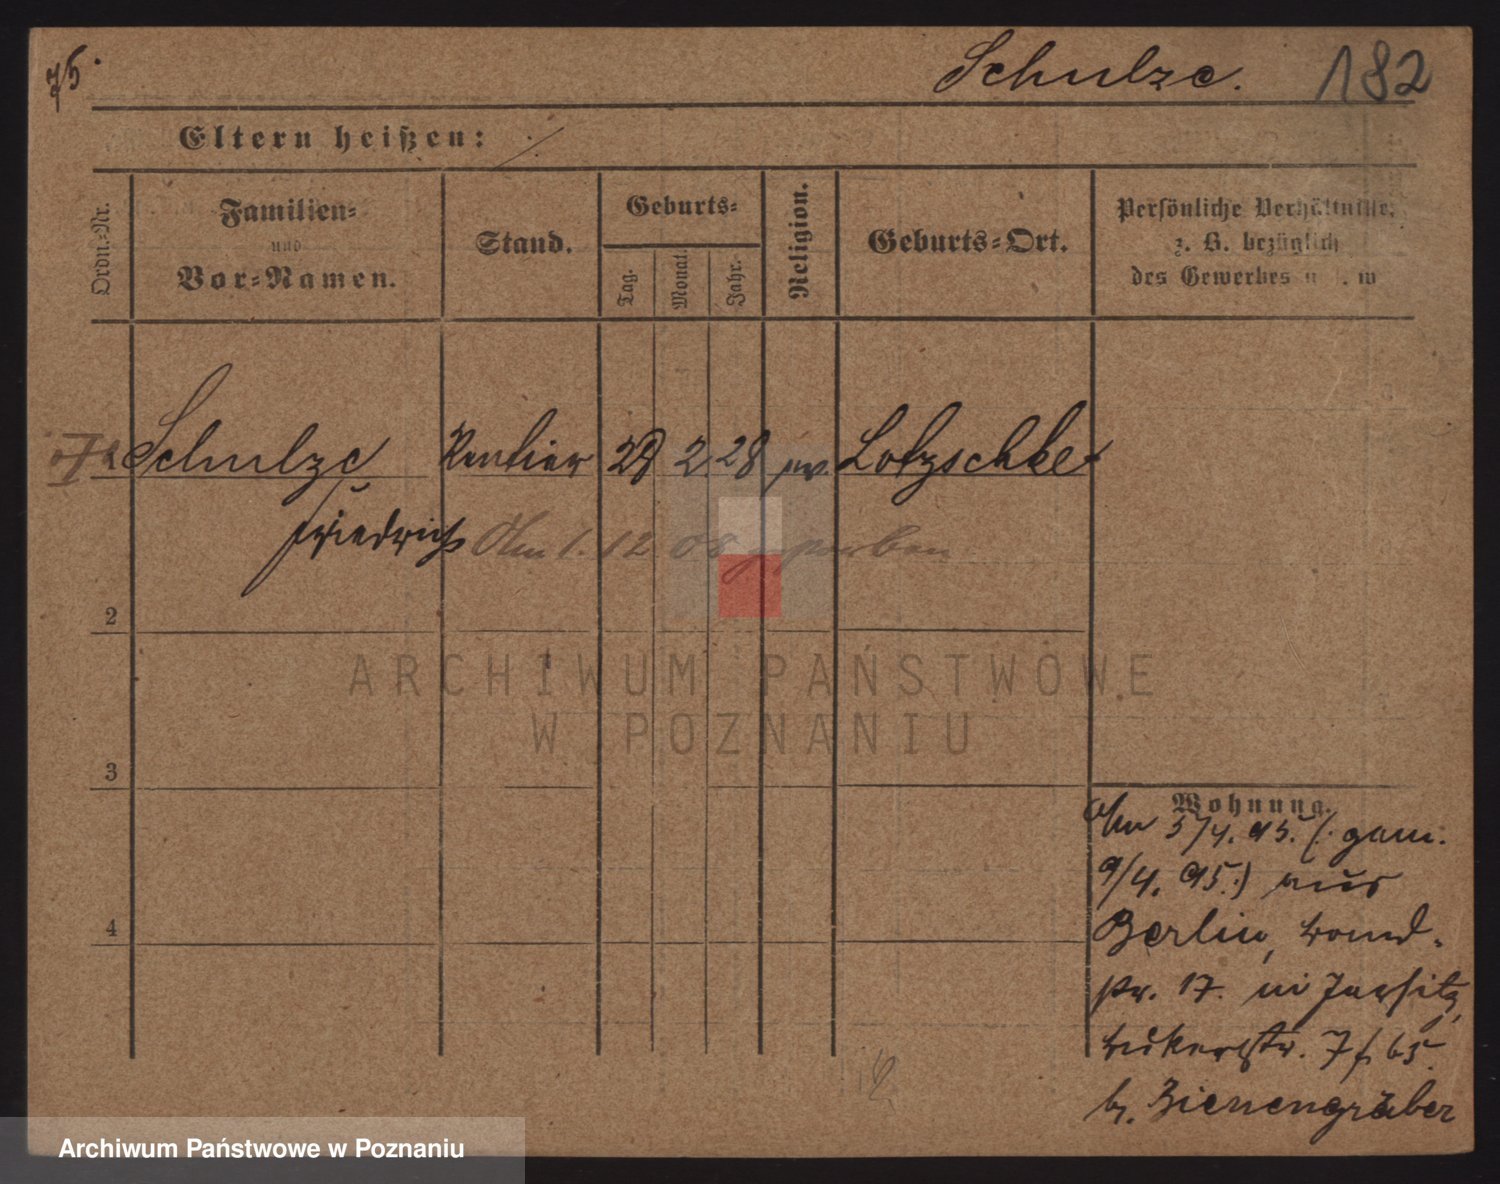 75.
Schulze.
182
Eltern heißen:
Ordn.-Nr.
Familien-
und
Vor-Namen.
Stand.
Geburts-
Tag.
Monat.
Jahr.
Religion.
Geburts-Ort.
Persönliche Verhältnisse,
z. B. bezüglich
des Gewerbes
Schulze
Rentier
28
2
28
Lotzschke
Friedrich
Am 1. 12 08 gestorben
2
3
4
Wohnung.
Am 5/4. 95. (:
9/4. 95:) aus
Berlin,
17. in Jersitz,
7
b. Bienengräber
ARCHIWUM PAŃSTWOWE
W POZNANIU
Archiwum Państwowe w Poznaniu